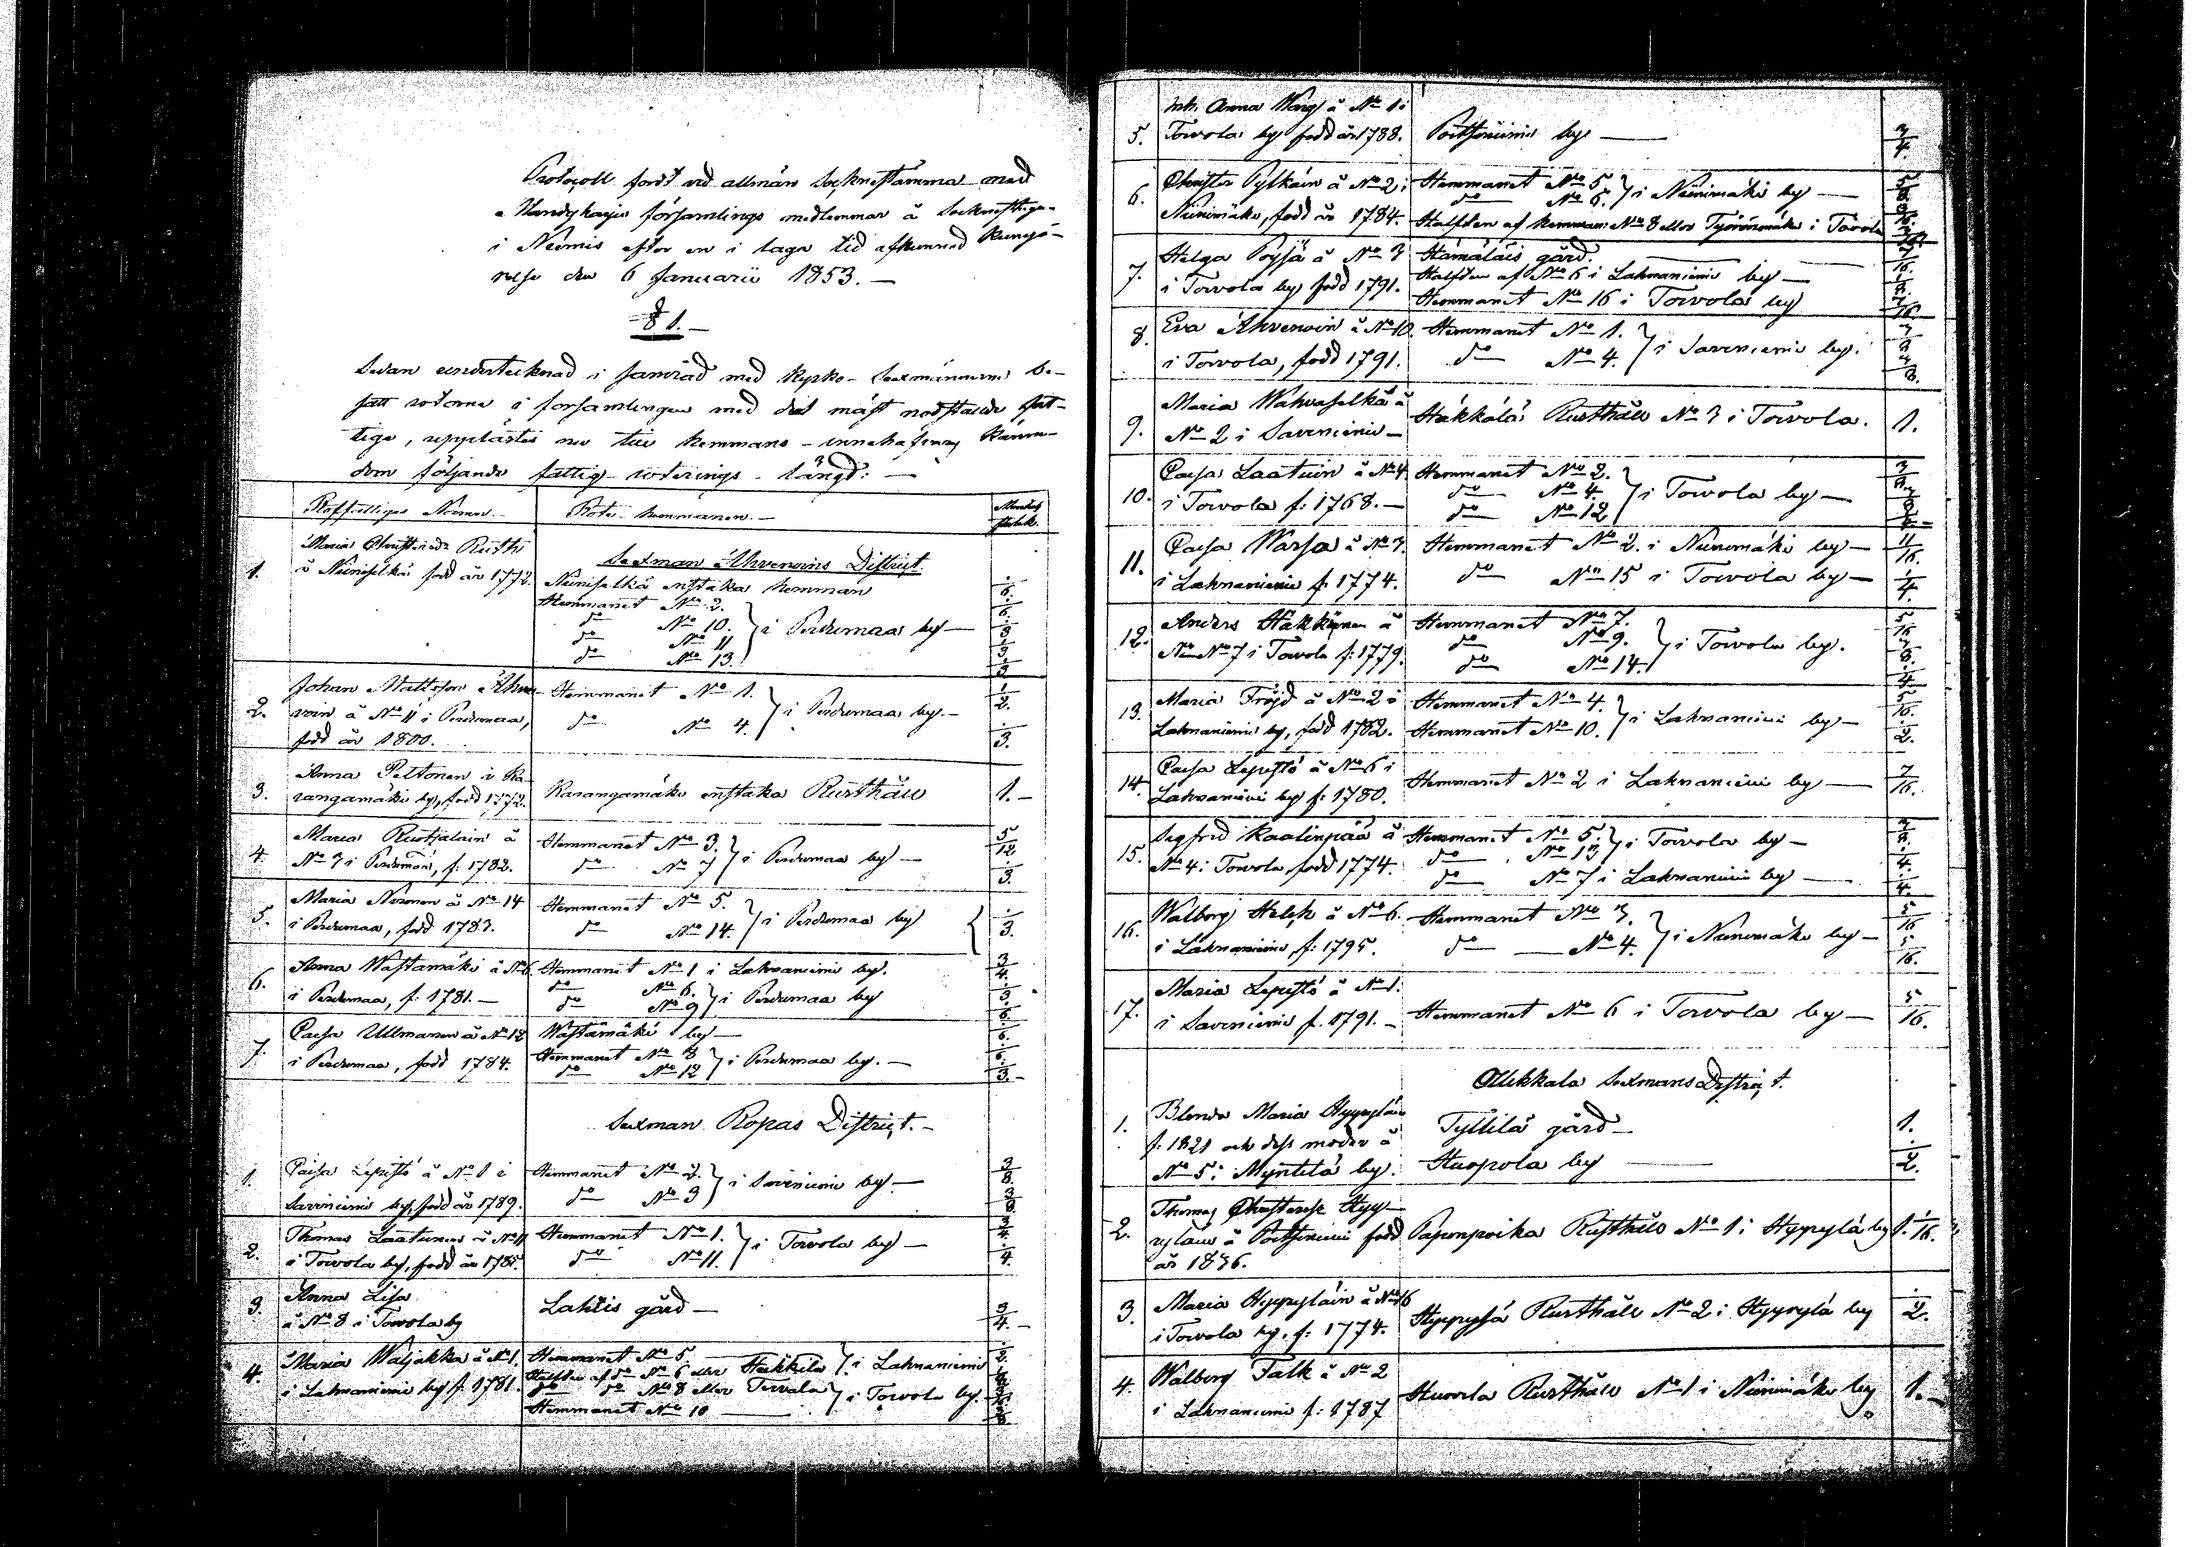 Protocoll fördt vid allmän Sockenstämma med
Handkasjo församlings medlemmar å Sockenstuga
i Niemis efter en i laga tid afkunnad Kungö-
relse den 6 Januarii 1853. —
§ 1. —
Sedan undertecknad i samråd med Kyrko-Sexmännerne be-
satt rotorne i församlingen med det mäst nödstälde fat-
tige, upplästes nu till hemmans-innehafvarnes känne-
dom följande fattig-roterings-längd: —
Rothjelliges Namn. — Rote-hemmanen. — Mantal
1. Maria Christersdr Ruthi
å Niiniselkä född år 1772.
Sexman Ahvenoins District.
Niiniselkä enstaka hemman
Hemmanet No 2.
do No 10.
do No 11
do No 13. } i Perdumaa by —
2. Johan Mattsson Ahve-
noin å No 11 i Perdumaa,
född år 1800.
Hemmanet No 1. 1/2.
do No 4. } i Perdumaa by. — 1/3.
3. Anna Peltonen i Ka-
rangamäki by, född 1772.
Karangamäki enstaka Rusthåll 1. —
4. Maria
No 7 i Perdumaa, f: 1782.
Hemmanet No 3. 5/12.
do No 7 } i Perdumaa by — 1/3.
5. Maria Noronen å No 14
i Perdumaa, född 1783.
Hemmanet No 5.
do No 14. } i Perdumaa by 1/3.
6. Anna Wastamäki å No 6
i Perdumaa, f. 1781. —
Hemmanet No 1 i Lahnaniemi by. 3/4.
do No 6.
do No 9 } i Perdumaa by
7. Caisa Ullmanen å No 12
i Perdumaa, född 1784.
Wastamäki by —
Hemmanet No 8
do No 12 } i Perdumaa by. — 1/3. —
Sexman Ropas District. —
1. Caisa Lepistö å No 1 i
Saviniemi by, född år 1789.
Hemmanet No 2. 3/8.
do No 3 } i Saviniemi by — 3/8.
2. Thomas Laatunen å No 11
i Torvola by, född år 1785.
Hemmanet No 1. 3/4.
do No 11. } i Torvola by — 1/4.
3. Anna Lisa
å No 8 i Torvola by
Lahtis gård — 3/4. —
4. Maria Waljakka å No 1.
i Lahnaniemi by f: 1781.
Hemmanet No 5 1/2.
Halfden af do No 6 eller Häkkilä } i Lahnaniemi
do do No 8 eller Torvala
Hemmanet No 10 } i Torvola by.
5. Inh. Anna Warg å No 1 i
Torvola by född år 1788.
Poitsiniemi by — 3/4.
6. Christer Pylkäin å No 2 i
Niinimäki, född år 1784.
Hemmanet No 5. 5/8.
do No 6. } i Niinimäki by —
Halfden af hemman No 8 eller Työrinmäki i Torvola
7. Helga Pöysä å No 3
i Torvola by född 1791.
Hämäläis gård.
Halfden af No 6 i Lahnaniemi by —
Hemmanet No 16 i Torvola by
8. Eva Ahvenoin å No 10
i Torvola, född 1791.
Hemmanet No 1.
do No 4. } i Saviniemi by.
9. Maria Wahvaselkä å
No 2 i Saviniemi —
Häkkälä Rusthåll No 3 i Torvola. 1.
10. Caisa Laatuin å No 4
i Torvola f: 1768. —
Hemmanet No 2. 3/8.
do No 4.
do No 12 } i Torvola by —
11. Caisa Warsa å No 7.
i Lahnaniemi f: 1774.
Hemmanet No 2. i Niinimäki by — 11/16.
do No 15 i Torvola by — 1/4.
12. Anders Häkkinen å
No No 7 i Torvola f: 1779.
Hemmanet No 7. 5/16
do No 9.
do No 14. } i Torvola by. 1/4
13. Maria Fröjd å No 2 i
Lahnaniemi by, född 1782.
Hemmanet No 4. 5/16.
Hemmanet No 10. } i Lahnaniemi by — 1/2.
14. Caisa Lepistö å No 6 i
Lahnaniemi by f: 1780.
Hemmanet No 2 i Lahnaniemi by — 7/16.
15. Sigfrid Kaalinpää å
No 4 i Torvola född 1774.
Hemmanet No 5. 3/8.
do No 13 } i Torvola by — 1/4.
do No 7 i Lahnaniemi by — 1/4.
16. Walborg Heleh å No 6.
i Lahnaniemi f: 1795.
Hemmanet No 3. 5/16
do No 4. } i Niinimäki by — 5/16.
17. Maria Lepistö å No 1.
i Saviniemi f. 1791. —
Hemmanet No 6 i Torvola by — 5/16.
Ollikkala Sexmans District.
1. Blenda Maria Hyyryläin
f. 1821 och dess moder å
No 5 i Myntilä by.
Tyllilä gård — 1.
Huopola by — 1/2.
2. Thomas Christerss. Hyy-
ryläin å Poitsiniemi född
år 1836.
Paponpoika Rusthåll No 1 i Hyyrylä by 1. 1/16.
3. Maria Hyyryläin å No 16
i Torvola by. f: 1774.
Hyyrylä Rusthåll No 2 i Hyyrylä by 1/2.
4. Walborg Falk å No 2
i Lahnaniemi f: 1787
Huovila Rusthåll No 1 i Niinimäki by 1. —